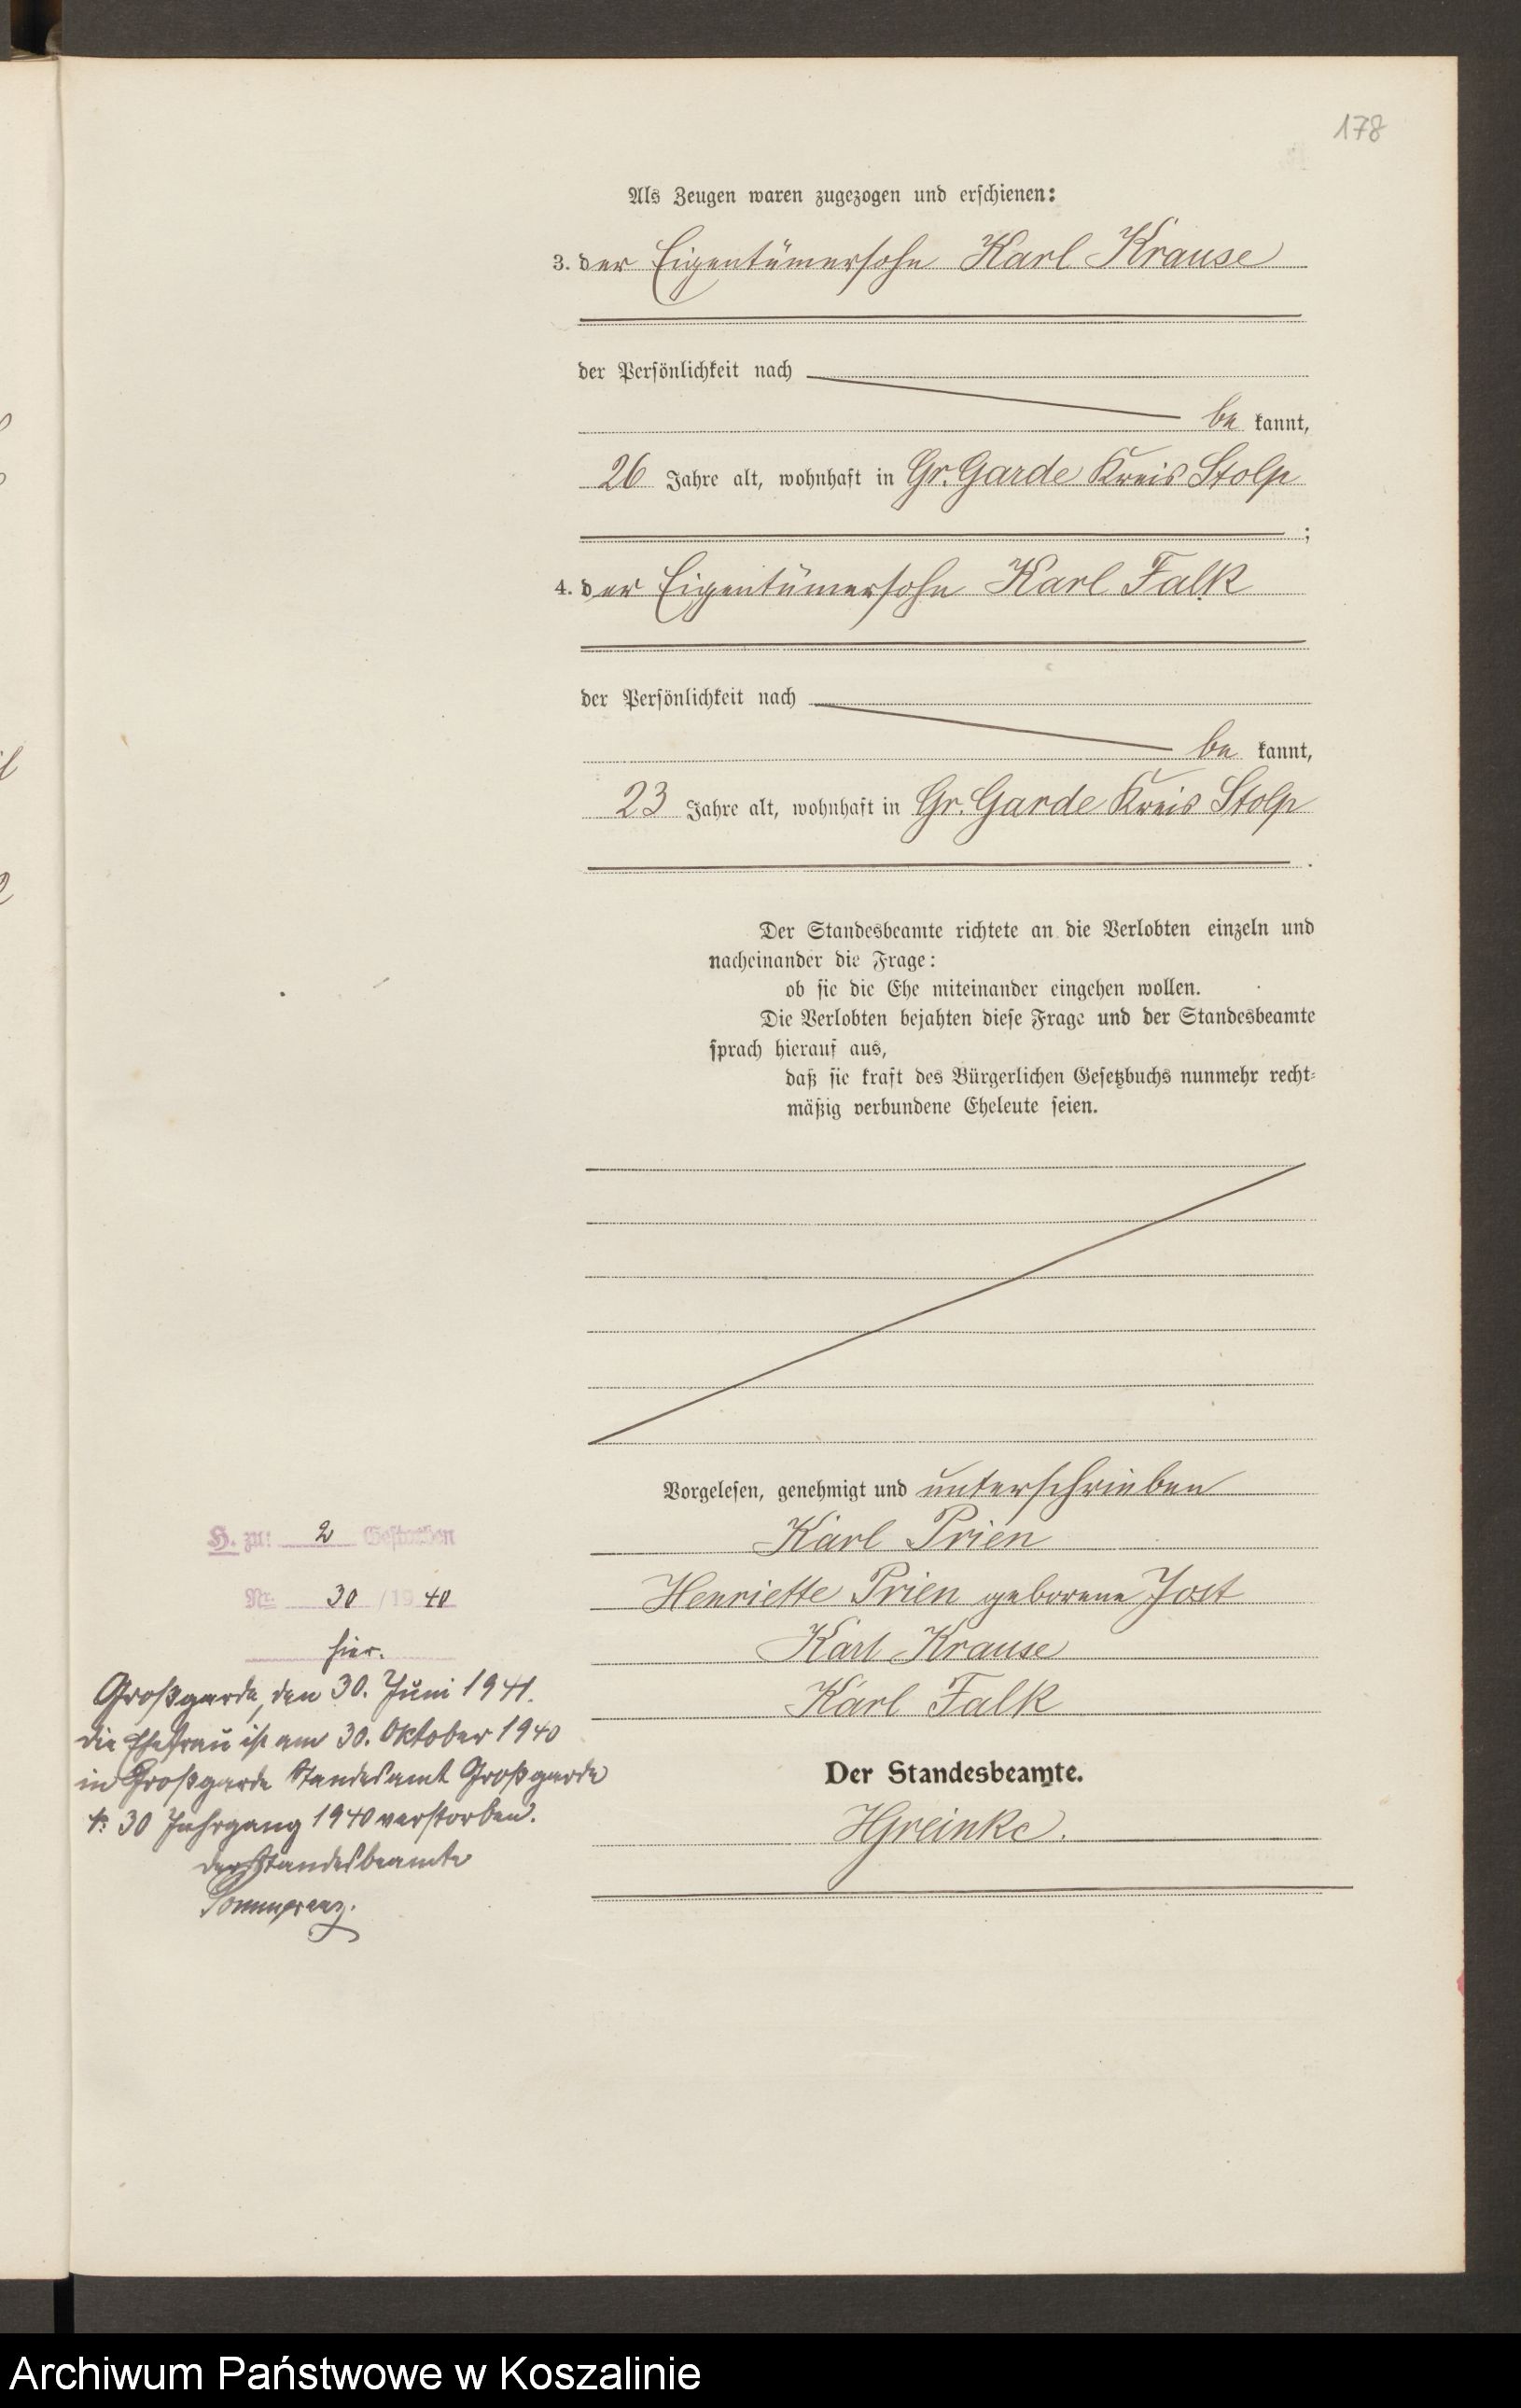 178
Als Zeugen waren zugezogen und erschienen:
3. der Eigentümersohn Karl Krause
der Persönlichkeit nach
be kannt,
26 Jahre alt, wohnhaft in Gr. Garde Kreis Stolp
;
4. der Eigentümersohn Karl Falk
der Persönlichkeit nach
be kannt,
23 Jahre alt, wohnhaft in Gr. Garde Kreis Stolp
.
Der Standesbeamte richtete an die Verlobten einzeln und
nacheinander die Frage:
ob sie die Ehe miteinander eingehen wollen.
Die Verlobten bejahten diese Frage und der Standesbeamte
sprach hierauf aus,
daß sie kraft des Bürgerlichen Gesetzbuchs nunmehr recht-
mäßig verbundene Eheleute seien.
Vorgelesen, genehmigt und unterschrieben
Karl Prien
Henriette Prien geborene Jost
Karl Krause
Karl Falk
Der Standesbeamte.
HGreinke.
H. zu: 2 Gestorben
Nr. 30 / 1940
hier.
Großgarde, den 30. Juni 1941.
Die Ehefrau ist am 30. Oktober 1940
in Großgarde Standesamt Großgarde
Nr. 30 Jahrgang 1940 verstorben.
Der Standesbeamte
Archiwum Państwowe w Koszalinie